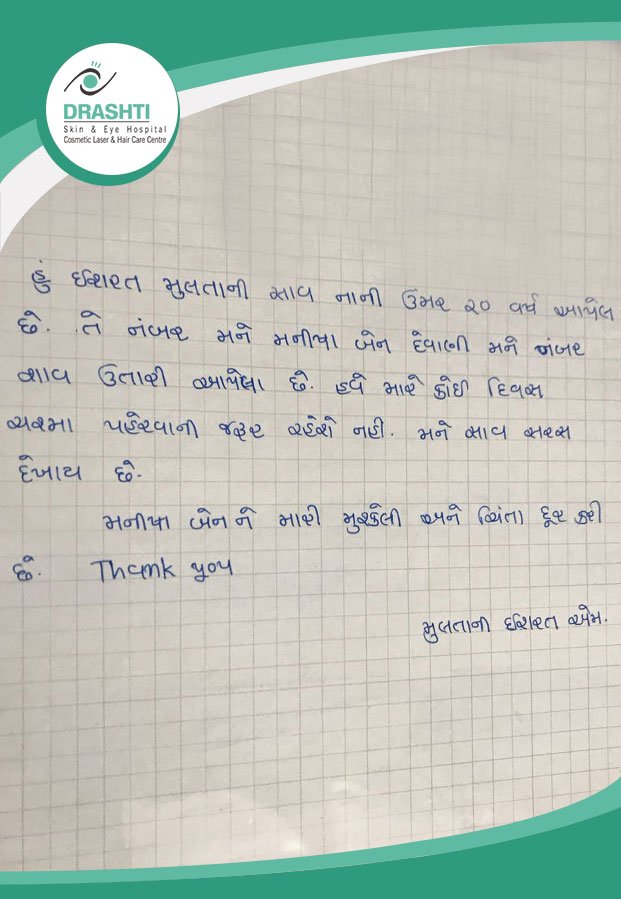 DRASHTI
Skin & Eye Hospital
Cosmetic Laser & Hair Care Centre
હું ઈશરત મુલતાની સાવ નાની ઉંમર ૨૦ વર્ષ આપેલ
છે. તે નંબર મને મનીષા બેન દેવાણી મને નંબર
સાવ ઉતારી આપેલા છે. હવે મારે કોઈ દિવસ
ચશ્મા પહેરવાની જરૂર રહેશે નહી. મને સાવ સરસ
દેખાય છે.
મનીષા બેન ને મારી મુશ્કેલી અને ચિંતા દૂર કરી
છે. Thank you
મુલતાની ઈશરત એમ.